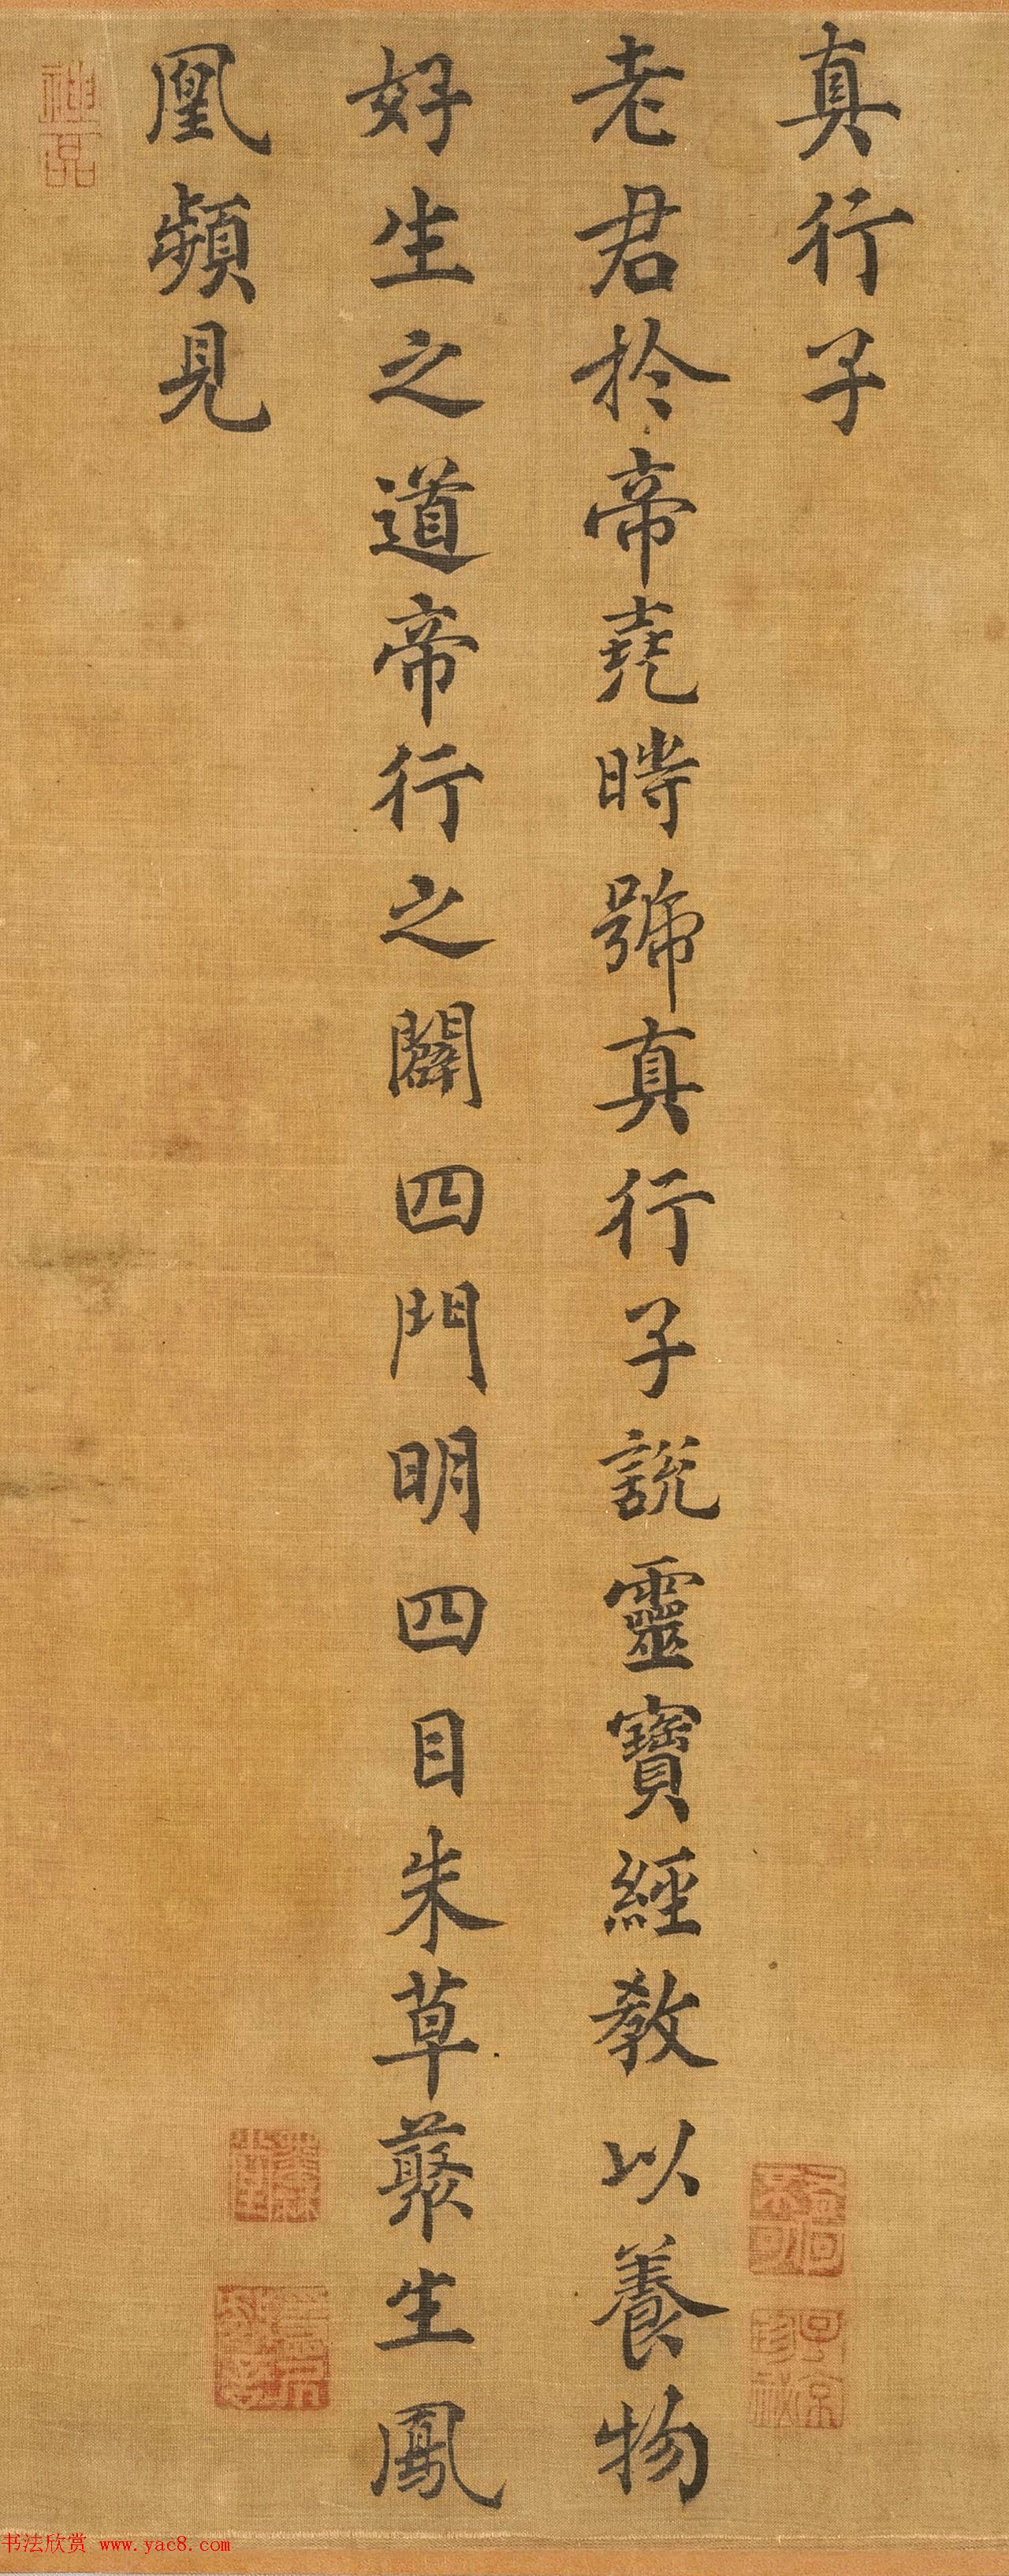 真行子
老君於帝堯時號真行子說靈寶經教以養物
好生之道帝行之闢四門明四目朱草叢生鳳
凰頻見
神品
子京珍秘
书法欣赏 www.yac8.com